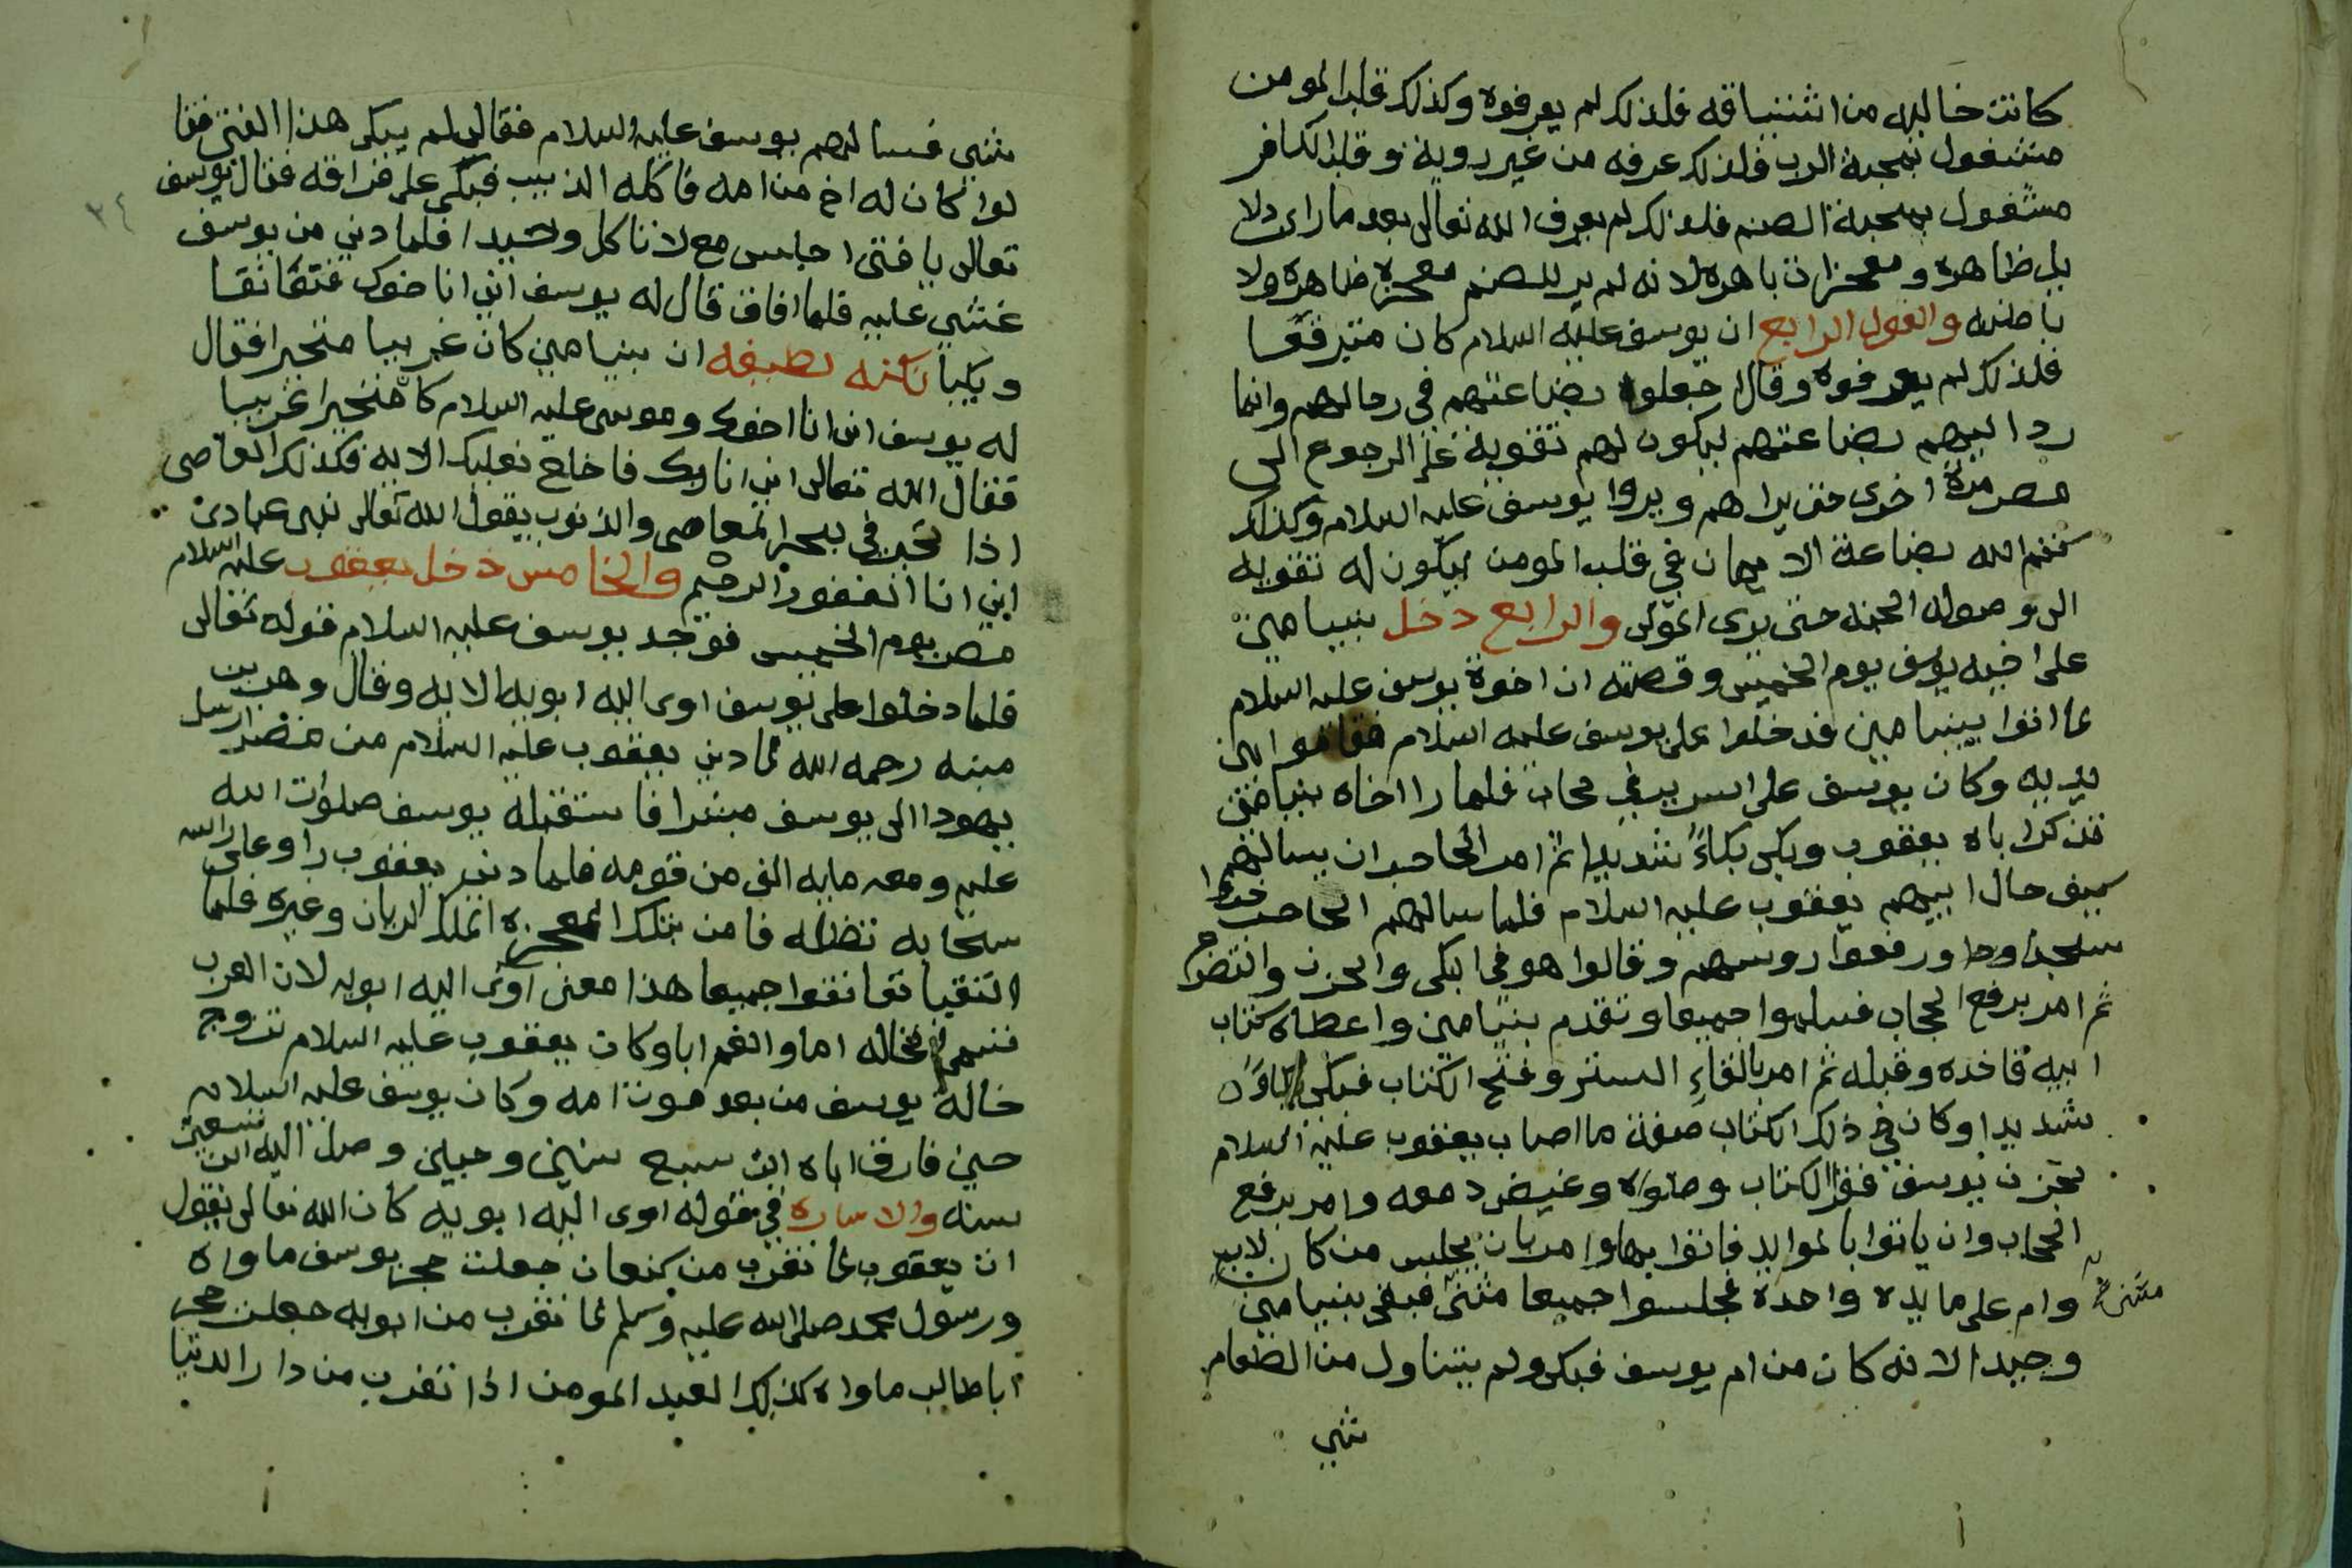 كانت خاليه من اشتياقه فلذلك لم يعرفوه وكذلك قلب المومن
مشغول بمحبة الرب فلذلك عرفه من غير روية وقلب الكافر
مشغول بمحبة الصنم فلذلك لم يعرف الله تعالى بعد ما راى دلا
يل ظاهره ومعجزات باهره لانه لم ير للصنم معجزة ظاهرة ولا
باطنه والقول الرابع ان يوسف عليه السلام كان متبرقعا
فلذلك لم يعرفوه وقال اجعلوا بضاعتهم في رحالهم وانما
رد اليهم بضاعتهم ليكون لهم تقوية على الرجوع الى
مصر مرة اخرى حتى يراهم ويروا يوسف عليه السلام وكذلك
ختم الله بضاعة الايمان في قلب المومن ليكون له تقويه
الى وصوله الجنه حتى يرى المولى والرابع دخل بنيامين
على اخيه يوسف يوم الخميس وقصته ان اخوة يوسف عليه السلام
لما اتوا ببنيامين فدخلوا على يوسف عليه السلام فقاموا بين
يديه وكان يوسف على السرير في حجاب فلما راا اخاه بنيامين
تذكر اباه يعقوب وبكى بكاءً شديدا ثم امر الحاجب ان يسالهم
كيف حال ابيهم يعقوب عليه السلام فلما سالهم الحاجب خروا
سجدا ورفعوا روسهم وقالوا هو في البكى والحزن والتضرع
ثم امر برفع الحجاب فسلموا جميعا وتقدم بنيامين واعطاه كتاب
ابيه فاخده وقبله ثم امر بالقاءِ الستر وفتح الكتاب فبكى بكاءً
شديدا وكان في ذلك الكتاب صفة ما اصاب يعقوب عليه السلام
بحزن يوسف فقرا الكتاب وطواه وغيض دمعه وامر برفع
الحجاب وان ياتوا بالموايد فاتوا بها وامر بان يجلس من كان لاب
وام على مايده واحدة فجلسوا جميعا مثنى فبقى بنيامين
مثنى
وحيدا لانه كان من ام يوسف فبكى ولم يتناول من الطعام
شي
شي فسالهم يوسف عليه السلام فقال لم يبكى هذا الفتى فقا
لوا كان له اخ من امه فاكله الذيب فبكى على فراقه فقال يوسف
تعالى يا فتى اجلس مع لاناكل وحيدا فلما دنى من يوسف
غشي عليه فلما افاق قال له يوسف اني انا اخوك فتعانقا
وبكيا نكته لطيفه ان بنيامين كان غريبا متحيرا فقال
له يوسف اني انا اخوك وموسى عليه السلام كا متحيرا غريبا
فقال الله تعالى اني انا ربك فاخلع نعليك الايه فكذلك العاصى
اذا تحير في بحر المعاصى والذنوب يقول الله تعالى نبى عبادى
اني انا الغفور الرحيم والخامس دخل يعقوب عليه السلام
مصر يوم الخميس فوجد يوسف عليه السلام قوله تعالى
فلما دخلوا على يوسف اوى اليه ابويه الايه وقال وهب بن
منبه رحمه الله لما دنى يعقوب عليه السلام من مصر ارسل
يهودا الى يوسف مبشرا فاستقبله يوسف صلوات الله
عليه ومعه مايه الف من قومه فلما دنى يعقوب راو على راسه
سحابه تظله فامن بتلك المعجزه الملك الريان وغيره فلما
التقيا تعانقوا جميعا هذا معنى اوى اليه ابويه لان العرب
تسمى الخاله اما والعم ابا وكان يعقوب عليه السلام تزوج
خالة يوسف من بعد موت امه وكان يوسف عليه السلام
حين فارق اباه ابن سبع سنين وحين وصل اليه ابن تسعين
سنه والاشاره في قوله اوى اليه ابويه كان الله تعالى يقول
ان يعقوب لما تغرب من كنعان جعلت حجر يوسف ماواه
ورسول محمد صلى الله عليه وسلم لما تغرب من ابويه جعلت حجر
اباطالب ماواه كذلك العبد المومن اذا تغرب من دار الدنيا
٣٤